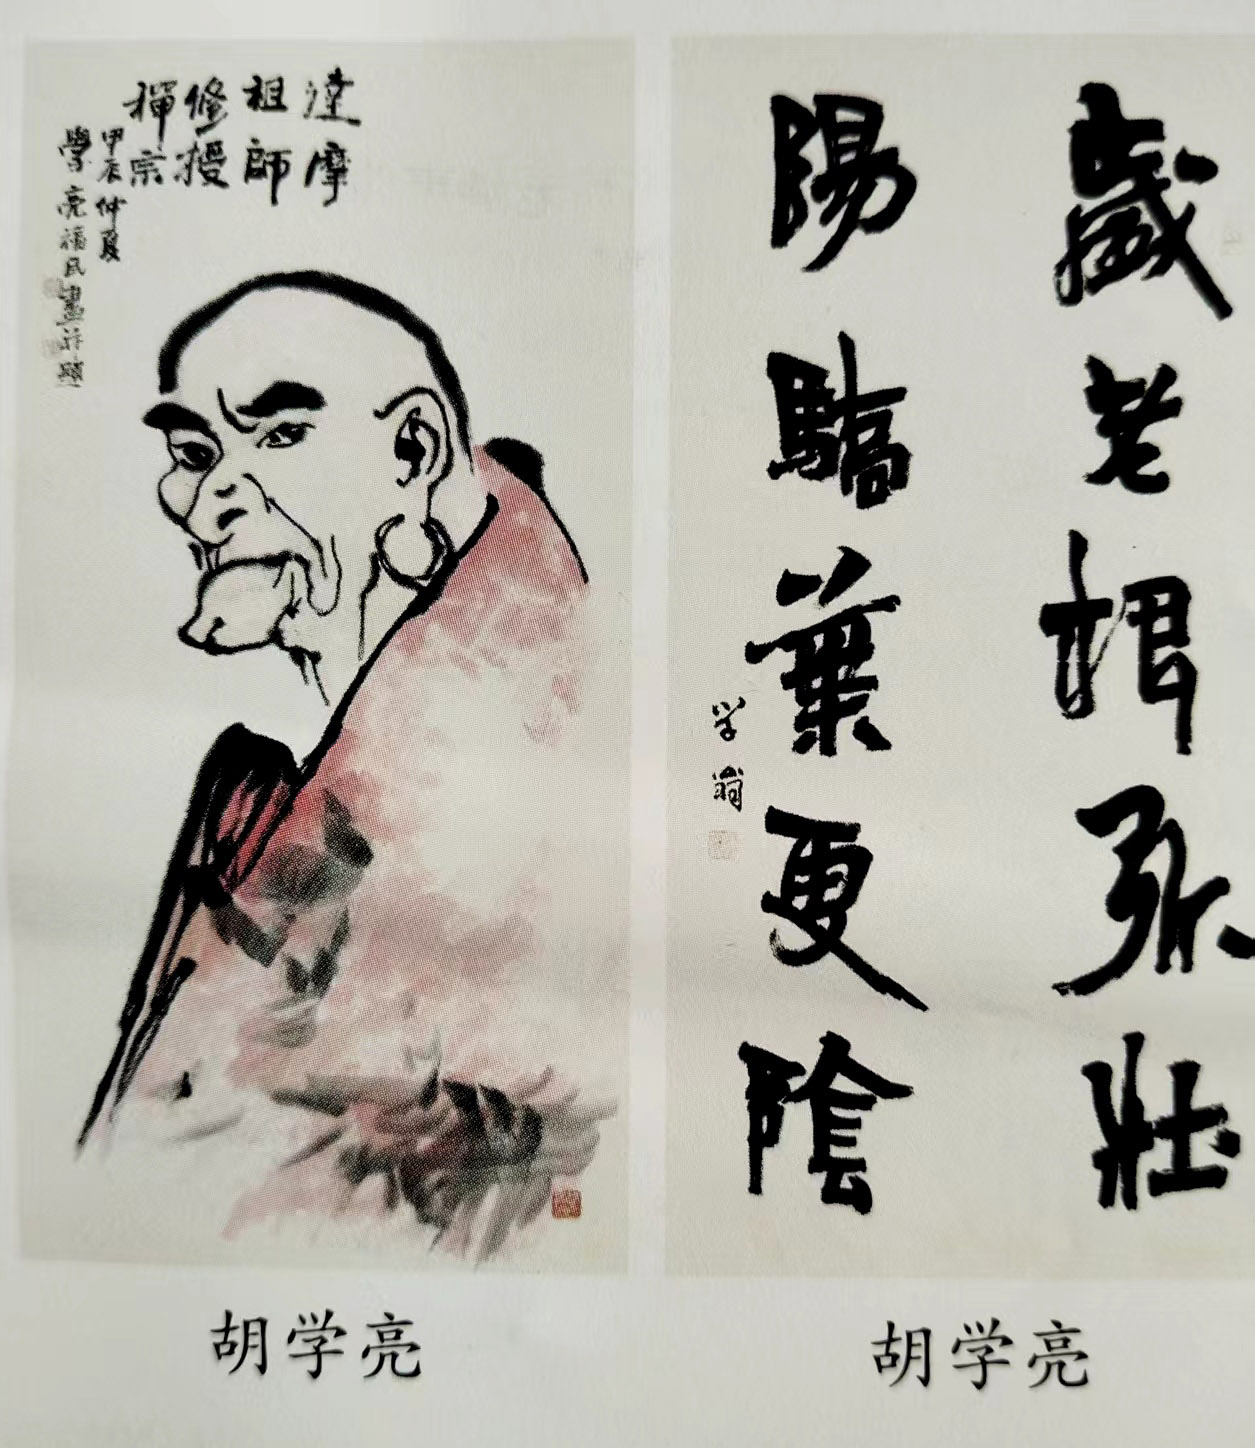 達摩
祖師
修授
禪宗
甲辰仲夏
學亮福民畫并題
胡学亮
歲老根弥壯
陽驕葉更陰
学翁
胡学亮